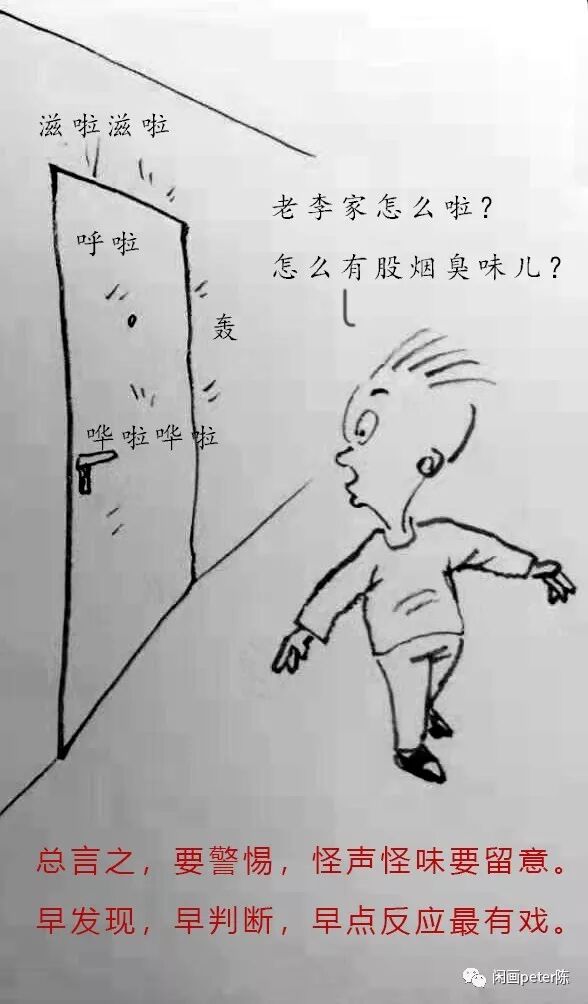 滋啦滋啦
呼啦
轰
哗啦哗啦
老李家怎么啦？
怎么有股烟臭味儿？
总言之，要警惕，怪声怪味要留意。
早发现，早判断，早点反应最有戏。
闲画peter陈